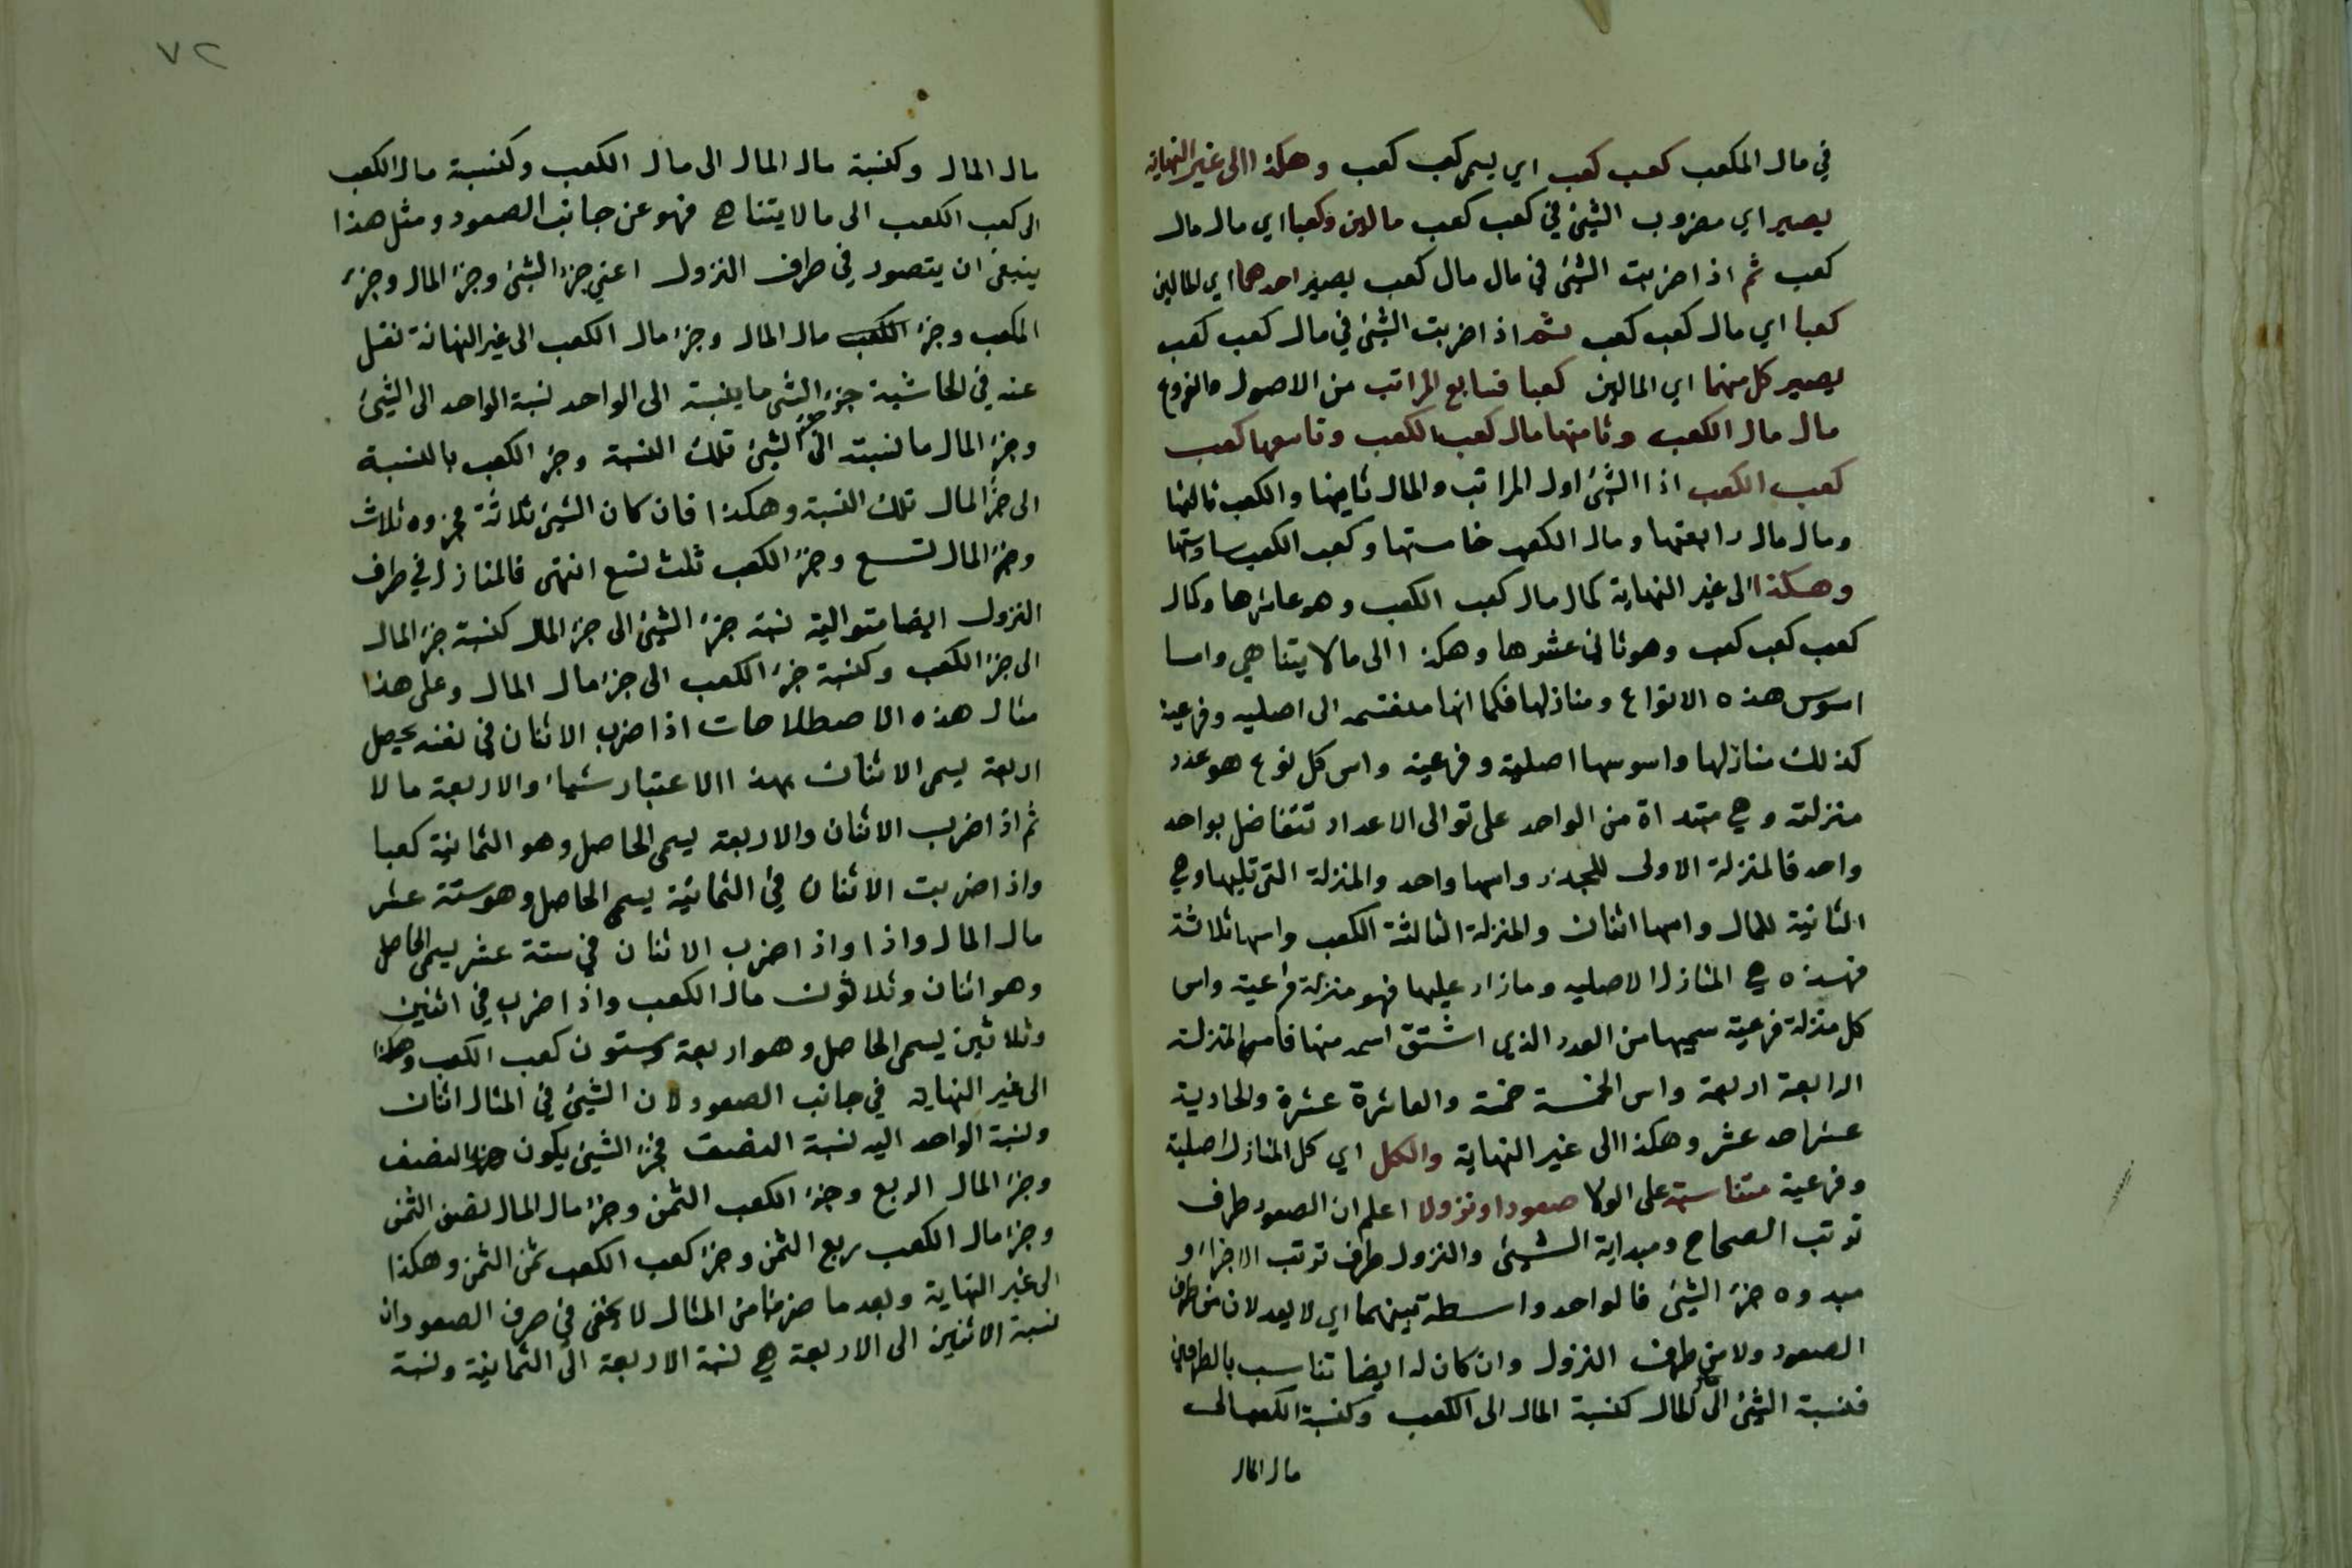 في مال المكعب كعب كعب اي يسمى كعب كعب وهكذا الى غير النهايه
يصير اي مضروب الشئ في كعب كعب مالين وكعبا اي مال مال
كعب ثم اذا ضربت الشئ في مال مال كعب يصير احدهما اي المالين
كعبا اي مال كعب كعب ثم اذا ضربت الشئ في مال كعب كعب
يصير كل منهما اي المالين كعبا فسابع المراتب من الاصول والفروع
مال مال الكعب وثامنها مال كعب الكعب وتاسعها كعب
كعب الكعب اذ الشئ اول المراتب والمال ثانيها والكعب ثالثها
ومال مال رابعتها ومال الكعب خامستها وكعب الكعب سادستها
وهكذا الى غير النهاية كمال مال كعب الكعب وهو عاشرها وكال
كعب كعب كعب وهو ثاني عشرها وهكذا الى ما لا يتناهي واما
اسوس هذه الانواع ومنازلها فكما انها منقسمه الى اصليه وفرعية
كذلك منازلها واسوسها اصلية وفرعية واس كل نوع هو عدد
منزلته وهي مبتداة من الواحد على توالى الاعداد تتفاضل بواحد
واحد فالمنزلة الاولى للجذر واسها واحد والمنزلة التى تليها وهي
الثانية للمال واسها اثنان والمنزلة الثالثة الكعب واسها ثلاثة
فهذه هي المنازل الاصليه وما زاد عليها فهو منزلة فرعية واس
كل منزلة فرعية سميها من العدد الذى اشتق اسمه منها فاس المنزلة
الرابعة اربعة واس الخمسة خمسة والعاشرة عشرة والحادية
عشر احد عشر وهكذا الى غير النهاية والكل اي كل المنازل اصلية
وفرعية متناسبة على الولا صعودا ونزولا اعلم ان الصعود طرف
ترتب الصحاح ومبداية الشيئ والنزول طرف ترتب الاجزاء و
مبدوه جزء الشيئ فالواحد واسطة بينهما اي لا يعد لا من طرف
الصعود ولا من طرف النزول وان كان له ايضا تناسب بالطرفين
فنسبة الشيئ الى المال كنسبة المال الى الكعب وكنسبة الكعب الى
مال المال
٧٢
مال المال وكنسبة مال المال الى مال الكعب وكنسبة مال الكعب
الى كعب الكعب الى ما لا يتناهى فهو عن جانب الصعود ومثل هذا
ينبغى ان يتصور في طرف النزول اعني جزء الشئ وجزء المال وجزء
المكعب وجزء الكعب مال المال وجزء مال الكعب الى غير النهاية نقل
عنه في الحاشية جزء الشى ما ينسبة الى الواحد نسبة الواحد الى الشيئ
وجزء المال ما نسبته الى جزء الشيئ تلك النسبة وجزء الكعب بالنسبة
الى جزء المال تلك النسبة وهكذا فان كان الشيئ ثلاثة فجزوه ثلاث
وجزء المال تسع وجزء الكعب ثلث تسع انتهى فالمنازل في طرف
النزول ايضا متوالية نسبة جزء الشيئ الى جزء المال كنسبة جزء المال
الى جزء الكعب وكنسبة جزء الكعب الى جزء مال المال وعلى هذا
مثال هذه الاصطلاحات اذا ضرب الاثنان في نفسه يحصل
اربعة يسمى الاثنان بهذا الاعتبار شيئا والاربعة مالا
ثم اذا ضرب الاثنان والاربعة يسمى الحاصل وهو الثمانية كعبا
واذا ضربت الاثنان في الثمانية يسمى الحاصل وهو ستة عشر
مال المال واذا واذا ضرب الاثنان في ستة عشر يسمى الحاصل
وهو اثنان وثلاثون مال الكعب واذا ضرب في اثنين
وثلاثين يسمى الحاصل وهو اربعة وستون كعب الكعب وهكذا
الى غير النهاية في جانب الصعود لان الشيئ في المثال اثنان
ونسبة الواحد اليه نسبة النصف فجزء الشيئ يكون النصف
وجزء المال الربع وجزء الكعب الثمن وجزء مال المال نصف الثمن
وجزء مال الكعب ربع الثمن وجزء كعب الكعب ثمن الثمن وهكذا
الى غير النهاية وبعد ما ضربنا من المثال لا يخفى في صرف الصعود ان
نسبة الاثنين الى الاربعة هي نسبة الاربعة الى الثمانية ونسبة